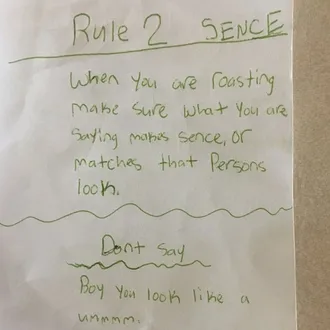 Rule 2 SENCE
When you are roasting
make sure what you are
saying makes sence, or
matches that Persons
look.
Dont say
Boy you look like a
ummmm.